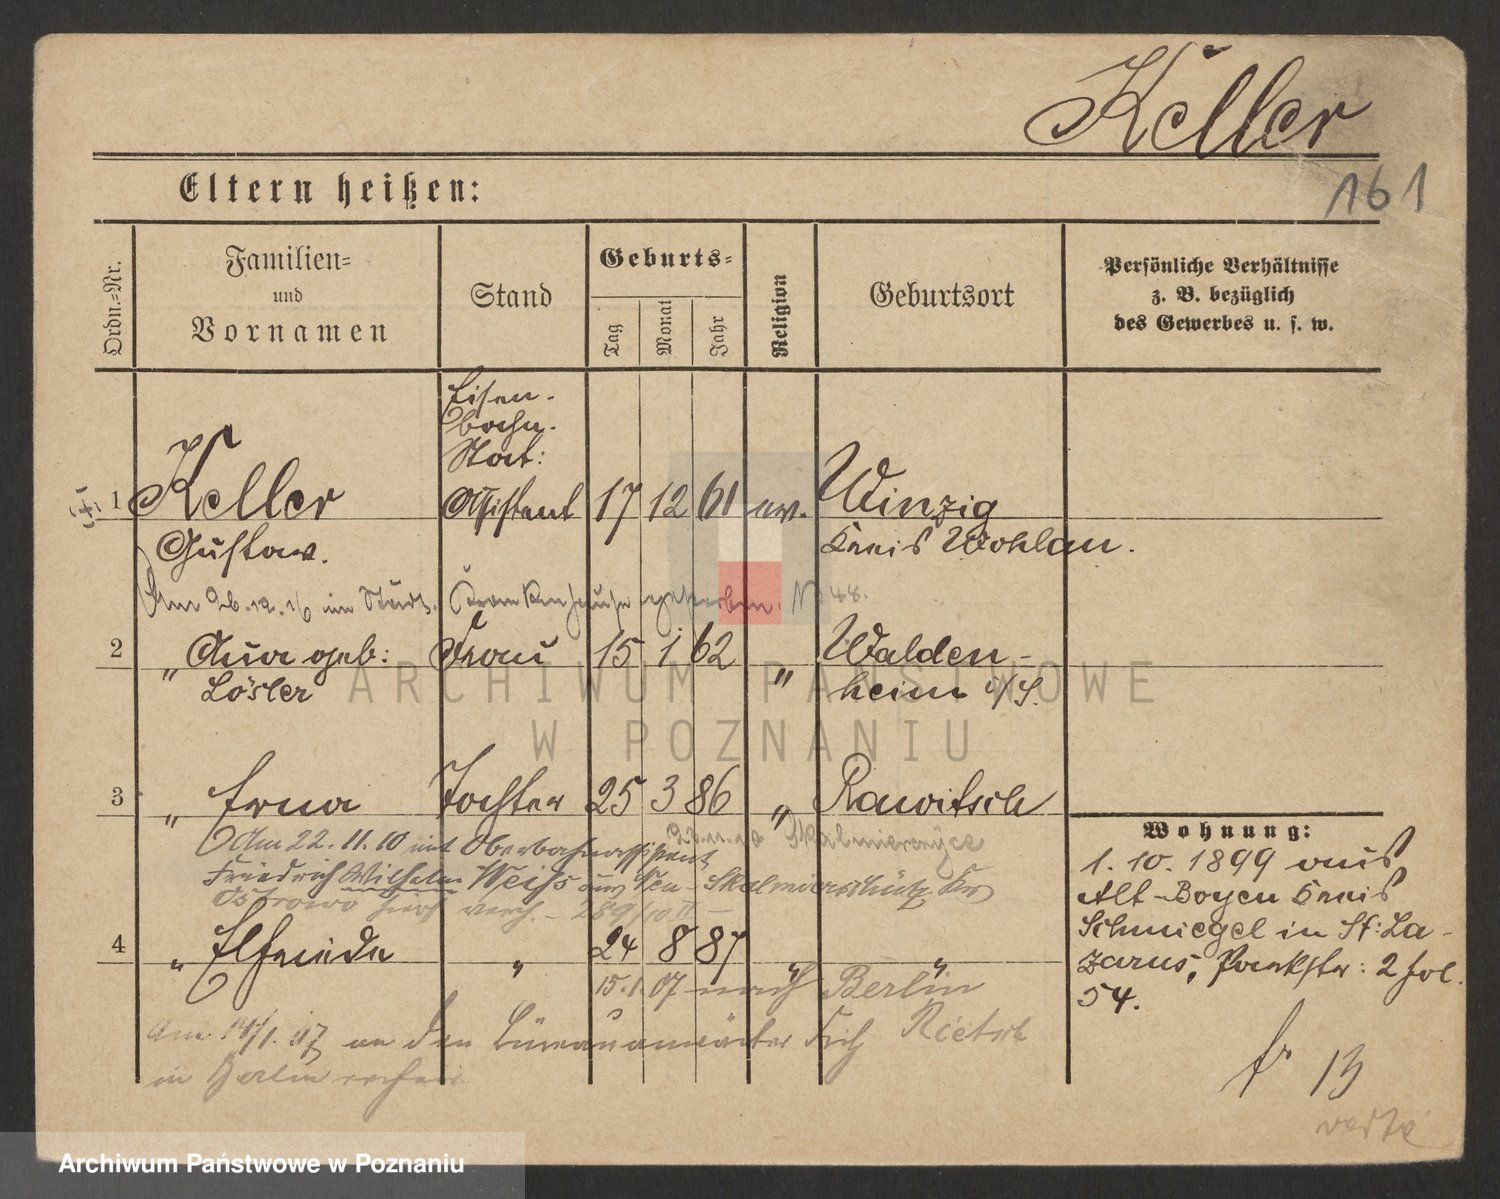 Keller
161
Eltern heißen:
Ordn.-Nr.
Familien-
und
Vornamen
Stand
Geburts-
Tag
Monat
Jahr
Religion
Geburtsort
Persönliche Verhältnisse
z. B. bezüglich
des Gewerbes u. s. w.
Eisen-
bahn-
Stat:
1 Keller Assistent 17 12 61 ev. Winzig
Gustav. Kreis Wohlau.
Am 26.12.16 im Städt. Krankenhause gestorben. No 48.
2 " Anna geb: Frau 15 1 62 " Walden-
Lösler heim i/S.
3 " Erna Tochter 25 3 86 " Rawitsch
Am 22. 11. 10 mit Oberbahnassistent
Friedrich Wilhelm Weiß aus Neu-Skalmierschütz Kr
Ostrowo hier verh.
4 " Elfriede " 24 8 87 " "
15.1.07 nach Berlin
Am 14/1. 07 an den Büreauanwärter Rietsch
in Berlin verheir.
Wohnung:
1. 10. 1899 aus
Alt-Boyen Kreis
Schmiegel in St: La-
zarus, Parkstr: 2 fol.
54.
13
ARCHIWUM PAŃSTWOWE
W POZNANIU
Archiwum Państwowe w Poznaniu